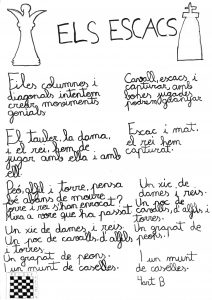 ELS ESCACS
Files columnes i
diagonals intentem
crear moviments
genials
El tauler, la dama,
i el rei hem de
jugar amb ella i amb
ell.
Peó, alfil i torre, pensa
bé abans de moure
torre i rei s'han enrocat?
Mira a veure que ha passat
Un xic de dames i reis.
Un poc de cavalls, d'alfils i
torres.
Un grapat de peons.
I un munt de caselles.
Cavall, escacs, i
capturar amb
bones jugades
podrem guanyar
Escac i mat,
el rei hem
capturat.
Un xic de
dames i reis.
Un poc de
cavalls, d'alfils i
torres.
Un grapat de
peons.
I un munt
de caselles.
4art B